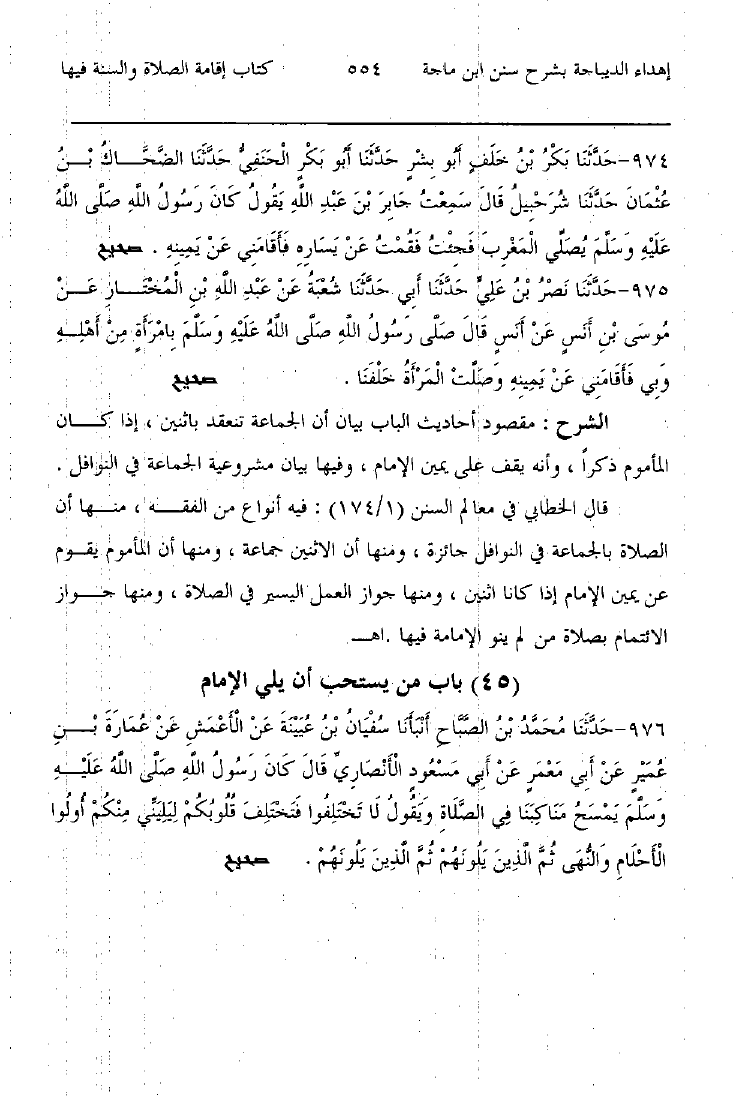 إهداء الديباجة بشرح سنن ابن ماجة ٥٥٤ كتاب إقامة الصلاة والسنة فيها
٩٧٤-حَدَّثَنَا بَكْرُ بْنُ خَلَفٍ أَبُو بِشْرٍ حَدَّثَنَا أَبُو بَكْرٍ الْحَنَفِيُّ حَدَّثَنَا الضَّحَّاكُ بْنُ
عُثْمَانَ حَدَّثَنَا شُرَحْبِيلُ قَالَ سَمِعْتُ جَابِرَ بْنَ عَبْدِ اللَّهِ يَقُولُ كَانَ رَسُولُ اللَّهِ صَلَّى اللَّهُ
عَلَيْهِ وَسَلَّمَ يُصَلِّي الْمَغْرِبَ فَجِئْتُ فَقُمْتُ عَنْ يَسَارِهِ فَأَقَامَنِي عَنْ يَمِينِهِ . صحيح
٩٧٥-حَدَّثَنَا نَصْرُ بْنُ عَلِيٍّ حَدَّثَنَا أَبِي حَدَّثَنَا شُعْبَةُ عَنْ عَبْدِ اللَّهِ بْنِ الْمُخْتَارِ عَنْ
مُوسَى بْنِ أَنَسٍ عَنْ أَنَسٍ قَالَ صَلَّى رَسُولُ اللَّهِ صَلَّى اللَّهُ عَلَيْهِ وَسَلَّمَ بِامْرَأَةٍ مِنْ أَهْلِهِ
وَبِي فَأَقَامَنِي عَنْ يَمِينِهِ وَصَلَّتْ الْمَرْأَةُ خَلْفَنَا . صحيح
الشرح : مقصود أحاديث الباب بيان أن الجماعة تنعقد باثنين ، إذا كان
المأموم ذكراً ، وأنه يقف على يمين الإمام ، وفيها بيان مشروعية الجماعة في النوافل .
قال الخطابي في معالم السنن (١٧٤/١) : فيه أنواع من الفقه ، منها أن
الصلاة بالجماعة في النوافل جائزة ، ومنها أن الاثنين جماعة ، ومنها أن المأموم يقوم
عن يمين الإمام إذا كانا اثنين ، ومنها جواز العمل اليسير في الصلاة ، ومنها جواز
الائتمام بصلاة من لم ينو الإمامة فيها .اهـ
(٤٥) باب من يستحب أن يلي الإمام
٩٧٦-حَدَّثَنَا مُحَمَّدُ بْنُ الصَّبَّاحِ أَنْبَأَنَا سُفْيَانُ بْنُ عُيَيْنَةَ عَنْ الْأَعْمَشِ عَنْ عُمَارَةَ بْنِ
عُمَيْرٍ عَنْ أَبِي مَعْمَرٍ عَنْ أَبِي مَسْعُودٍ الْأَنْصَارِيِّ قَالَ كَانَ رَسُولُ اللَّهِ صَلَّى اللَّهُ عَلَيْهِ
وَسَلَّمَ يَمْسَحُ مَنَاكِبَنَا فِي الصَّلَاةِ وَيَقُولُ لَا تَخْتَلِفُوا فَتَخْتَلِفَ قُلُوبُكُمْ لِيَلِيَنِّي مِنْكُمْ أُولُوا
الْأَحْلَامِ وَالنُّهَى ثُمَّ الَّذِينَ يَلُونَهُمْ ثُمَّ الَّذِينَ يَلُونَهُمْ . صحيح